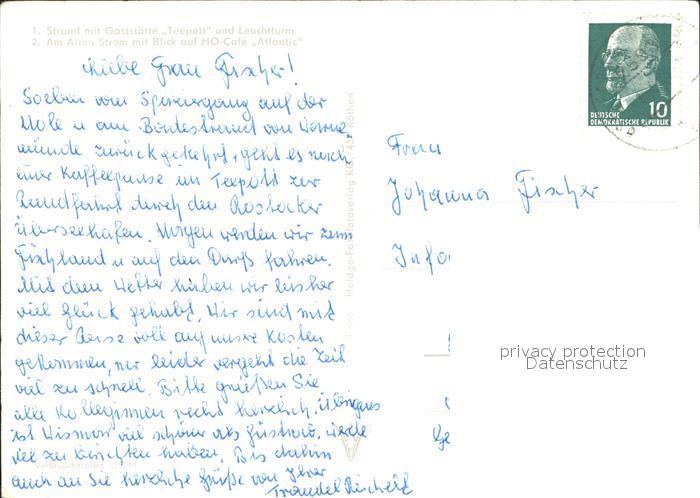 1. Strand mit Gaststätte „Teepott" und Leuchtturm
2. Am Alten Strom mit Blick auf HO-Café „Atlantic"
Liebe Frau Fischer!
Soeben vom Spaziergang auf der
Mole u am Badestrand von Warne
münde zurück gekehrt, geht es nach
einer Kaffeepause im Teepott zur
Rundfahrt durch den Rostocker
Überseehafen. Morgen werden wir zum
Fischland u auf den Darß fahren.
Mit dem Wetter haben wir bisher
viel Glück gehabt. Wir sind mit
dieser Reise voll auf unsre Kosten
gekommen, nur leider vergeht die Zeit
viel zu schnell. Bitte grüßen Sie
alle Kolleginnen recht herzlich. Übrigens
ist Wismar viel schöner als Güstrow, werde
viel zu berichten haben. Bis dahin
auch an Sie herzliche Grüße von Ihrer
Traudel
Verbraucherpreis M
DEUTSCHE
DEMOKRATISCHE REPUBLIK
10
Frau
Johanna Fischer
privacy protection
Datenschutz